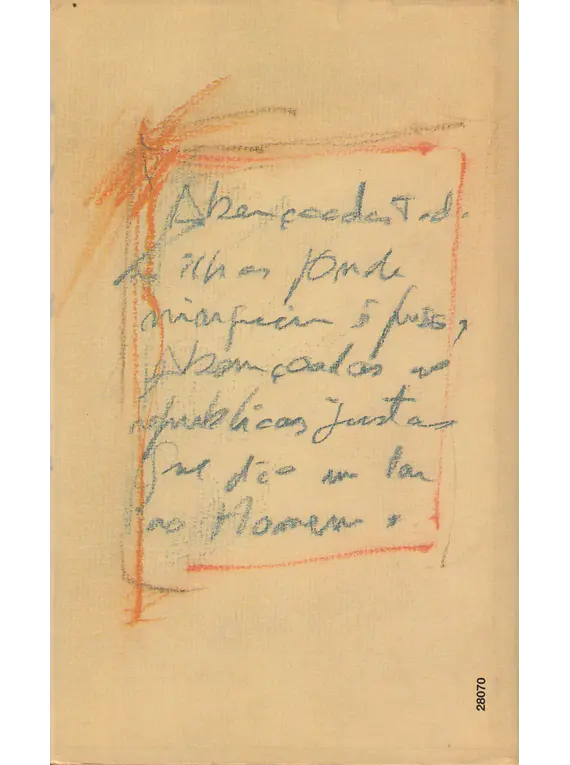 Abençoadas
as ilhas onde
ninguém é preso,
Abençoadas as
repúblicas justas
que dão um lar
ao Homem.
28070